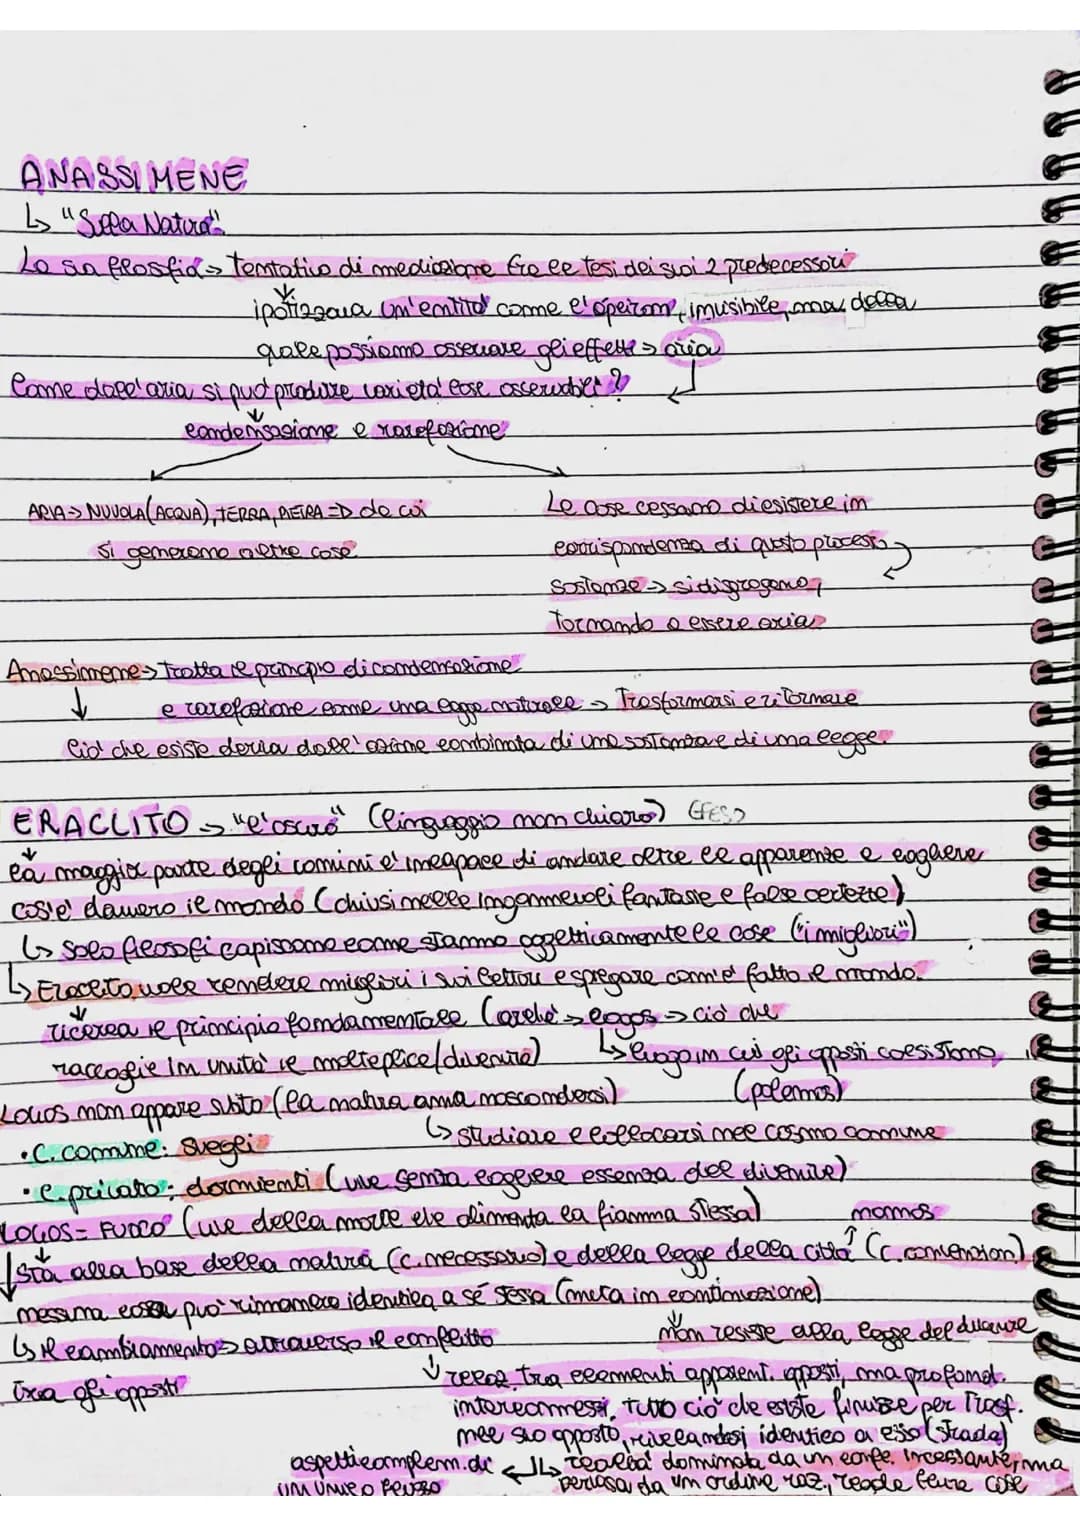 ANASSIMENE
↳ "Sulla Natura"
La sua filosofia → Tentativo di mediazione fra le tesi dei suoi 2 predecessori
ipotizzava un'entità come l'ápeiron, invisibile, ma della
quale possiamo osservare gli effetti → aria
Come dall'aria si può produrre varietà cose osservabili?
condensazione e rarefazione
ARIA → NUVOLA (ACQUA), TERRA, PIETRA => da cui
si generano altre cose
Le cose cessano di esistere in
corrispondenza di questo processo
sostanze → si disgregano,
tornando a essere aria
Anassimene → tratta il principio di condensazione
e rarefazione come una legge naturale → Trasformarsi e ritornare
Ciò che esiste deriva dall'azione combinata di una sostanza e di una legge.
ERACLITO → "l'oscuro" (linguaggio non chiaro) EFESO
la maggior parte degli uomini è incapace di andare oltre le apparenze e cogliere
cos'è davvero il mondo (chiusi nelle ingannevoli fantasie e false certezze)
↳ Solo filosofi capiscono come stanno oggettivamente le cose ("i migliori")
↳ Eraclito vole rendere migliori i suoi lettori e spiegare com'è fatto il mondo.
ricerca il principio fondamentale (archè → logos → ciò che
raccoglie in unità il molteplice/divenire) ↳ luogo in cui gli opposti coesistono
(polemos)
Logos non appare subito (la natura ama nascondersi)
↳ studiare e collocarsi nel cosmo comune
• C. comune: svegli
• C. privato: dormienti (vive senza cogliere essenza del divenire)
LOGOS = FUOCO (vive della morte che alimenta la fiamma stessa) nomos
↓ Sta alla base della natura (c. necessario) e della legge della città (c. convenzion.)
nessuna cosa può rimanere identica a sé stessa (muta in continuazione)
↳ Il cambiamento → attraverso il conflitto non resiste alla legge del divenire
tra gli opposti
relaz. tra elementi apparent. opposti, ma profond.
interconnessi, tutto ciò che esiste finisce per Trasf.
nel suo opposto, rivelandosi identico a esso (strada)
aspetti complem. di ↲↳ realtà dominata da un conf. incessante, ma
un unico flusso pervasa da un ordine raz., le cose